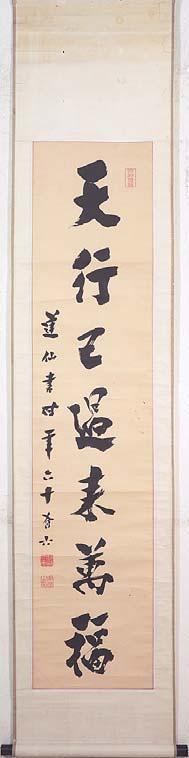 天行已過來萬福
蓮仙書時年六十有六